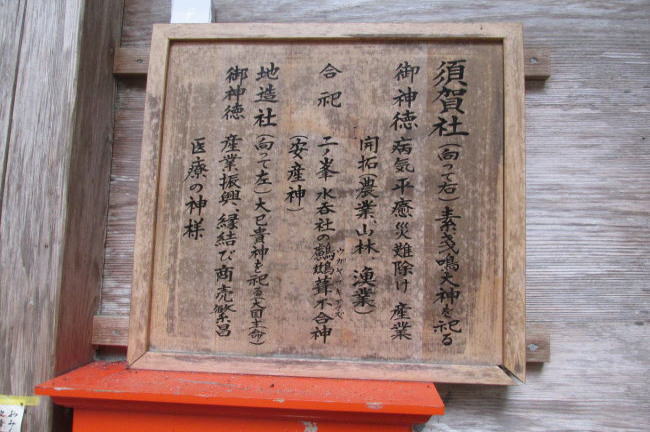 須賀社(向って右)素戔鳴大神を祀る
御神徳 病気平癒災難除け 産業
開拓(農業、山林、漁業)
合祀 二ノ峯 水呑社の鸕鷀葺不合神
ウガヤフキアエズ
(安産神)
地造社(向って左)大己貴神を祀る(大国主命)
御神徳 産業振興、縁結び商売繁昌
医療の神様